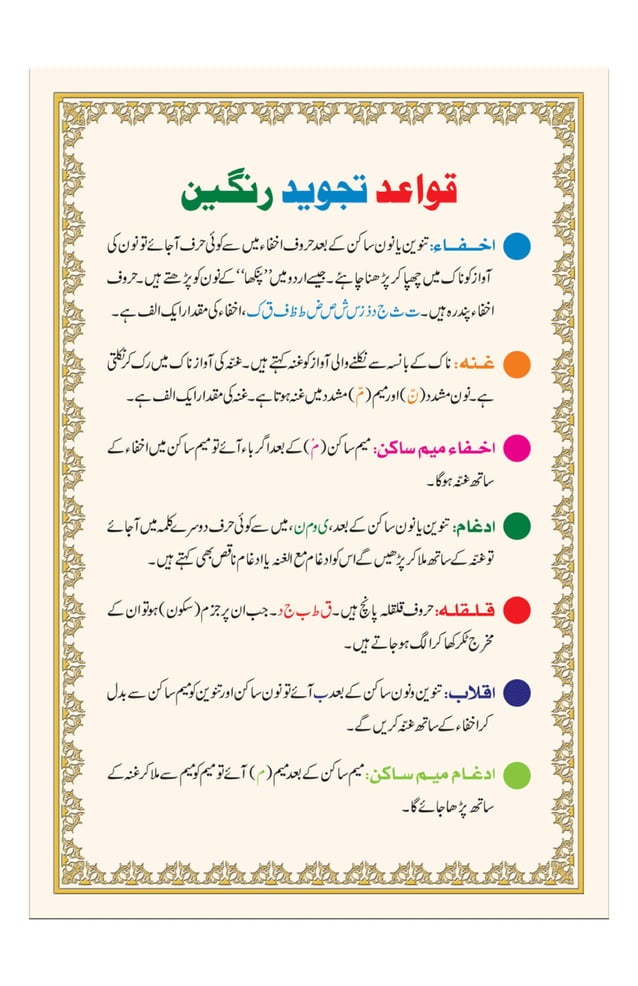 قواعد تجوید رنگین
اخفاء: تنوین یا نون ساکن کے بعد حروف اخفاء میں سے کوئی حرف آجائے تو نون کی
آواز کو ناک میں چھپا کر پڑھنا چاہئے۔ جیسے اردو میں ’’پنکھا‘‘ کے نون کو پڑھتے ہیں۔ حروف
اخفاء پندرہ ہیں۔ ت ث ج د ذ ز س ش ص ض ط ظ ف ق ک، اخفاء کی مقدار ایک الف ہے۔
غنه: ناک کے بانسہ سے نکلنے والی آواز کو غنہ کہتے ہیں۔ غنّہ کی آواز ناک میں رک کر نکلتی
ہے۔ نون مشدد (نّ) اور میم (مّ) مشدد میں غنہ ہوتا ہے۔ غنہ کی مقدار ایک الف ہے۔
اخفاء میم ساکن: میم ساکن (مْ) کے بعد اگر باء آئے تو میم ساکن میں اخفاء کے
ساتھ غنّہ ہوگا۔
ادغام: تنوین یا نون ساکن کے بعد، ی و م ن، میں سے کوئی حرف دوسرے کلمہ میں آجائے
تو غنّہ کے ساتھ ملا کر پڑھیں گے اس کو ادغام مع الغنہ یا ادغام ناقص بھی کہتے ہیں۔
قلقله: حروف قلقلہ پانچ ہیں۔ ق ط ب ج د۔ جب ان پر جزم (سکون) ہو تو ان کے
مخرج ٹکر کھا کر الگ ہو جاتے ہیں۔
اقلاب: تنوین و نون ساکن کے بعد ب آئے تو نون ساکن اور تنوین کو میم ساکن سے بدل
کر اخفاء کے ساتھ غنّہ کریں گے۔
ادغام میم ساکن: میم ساکن کے بعد میم (م) آئے تو میم کو میم سے ملا کر غنہ کے
ساتھ پڑھا جائے گا۔